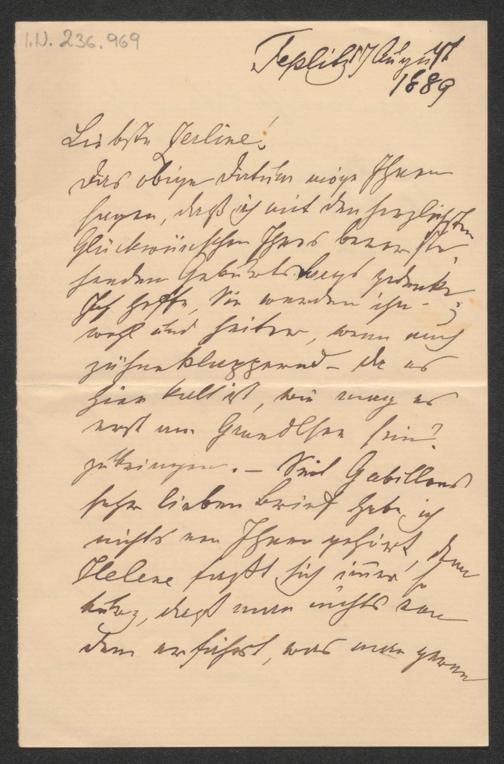 I.N. 236.969
Teplitz 17 August
1889
Liebste Zerline!
Das obige Datum möge Ihnen
sagen, daß ich mit den herzlichsten
Glückwünschen Ihres bevorste-
henden Geburtstags gedenke.
Ich hoffe, Sie werden ihn
wohl und heiter, wenn auch
zähneklappernd – da es
hier kalt ist, wie mag es
erst am Grundlsee sein?
zubringen. – Seit Gabillons
sehr lieben Brief habe ich
nichts von Ihnen gehört, denn
Helene faßt sich immer so
kurz, daß man nichts von
dem erfährt, was man gerne